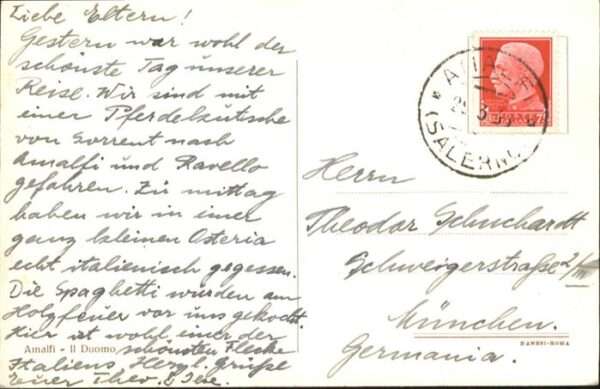 Liebe Eltern!
Gestern war wohl der
schönste Tag unserer
Reise. Wir sind mit
einer Pferdekutsche
von Sorrent nach
Amalfi und Ravello
gefahren. Zu mittag
haben wir in einer
ganz kleinen Osteria
echt italienisch gegessen.
Die Spaghetti wurden am
Holzfeuer vor uns gekocht.
Hier ist wohl einer der
schönsten Flecke
Italiens. Herzl. Grüße
Euer Theo &
Amalfi - Il Duomo
AMALFI
(SALERNO)
Herrn
Theodor Schuchardt
Schweigerstraße 2/III
München.
Germania.
DANESI-ROMA